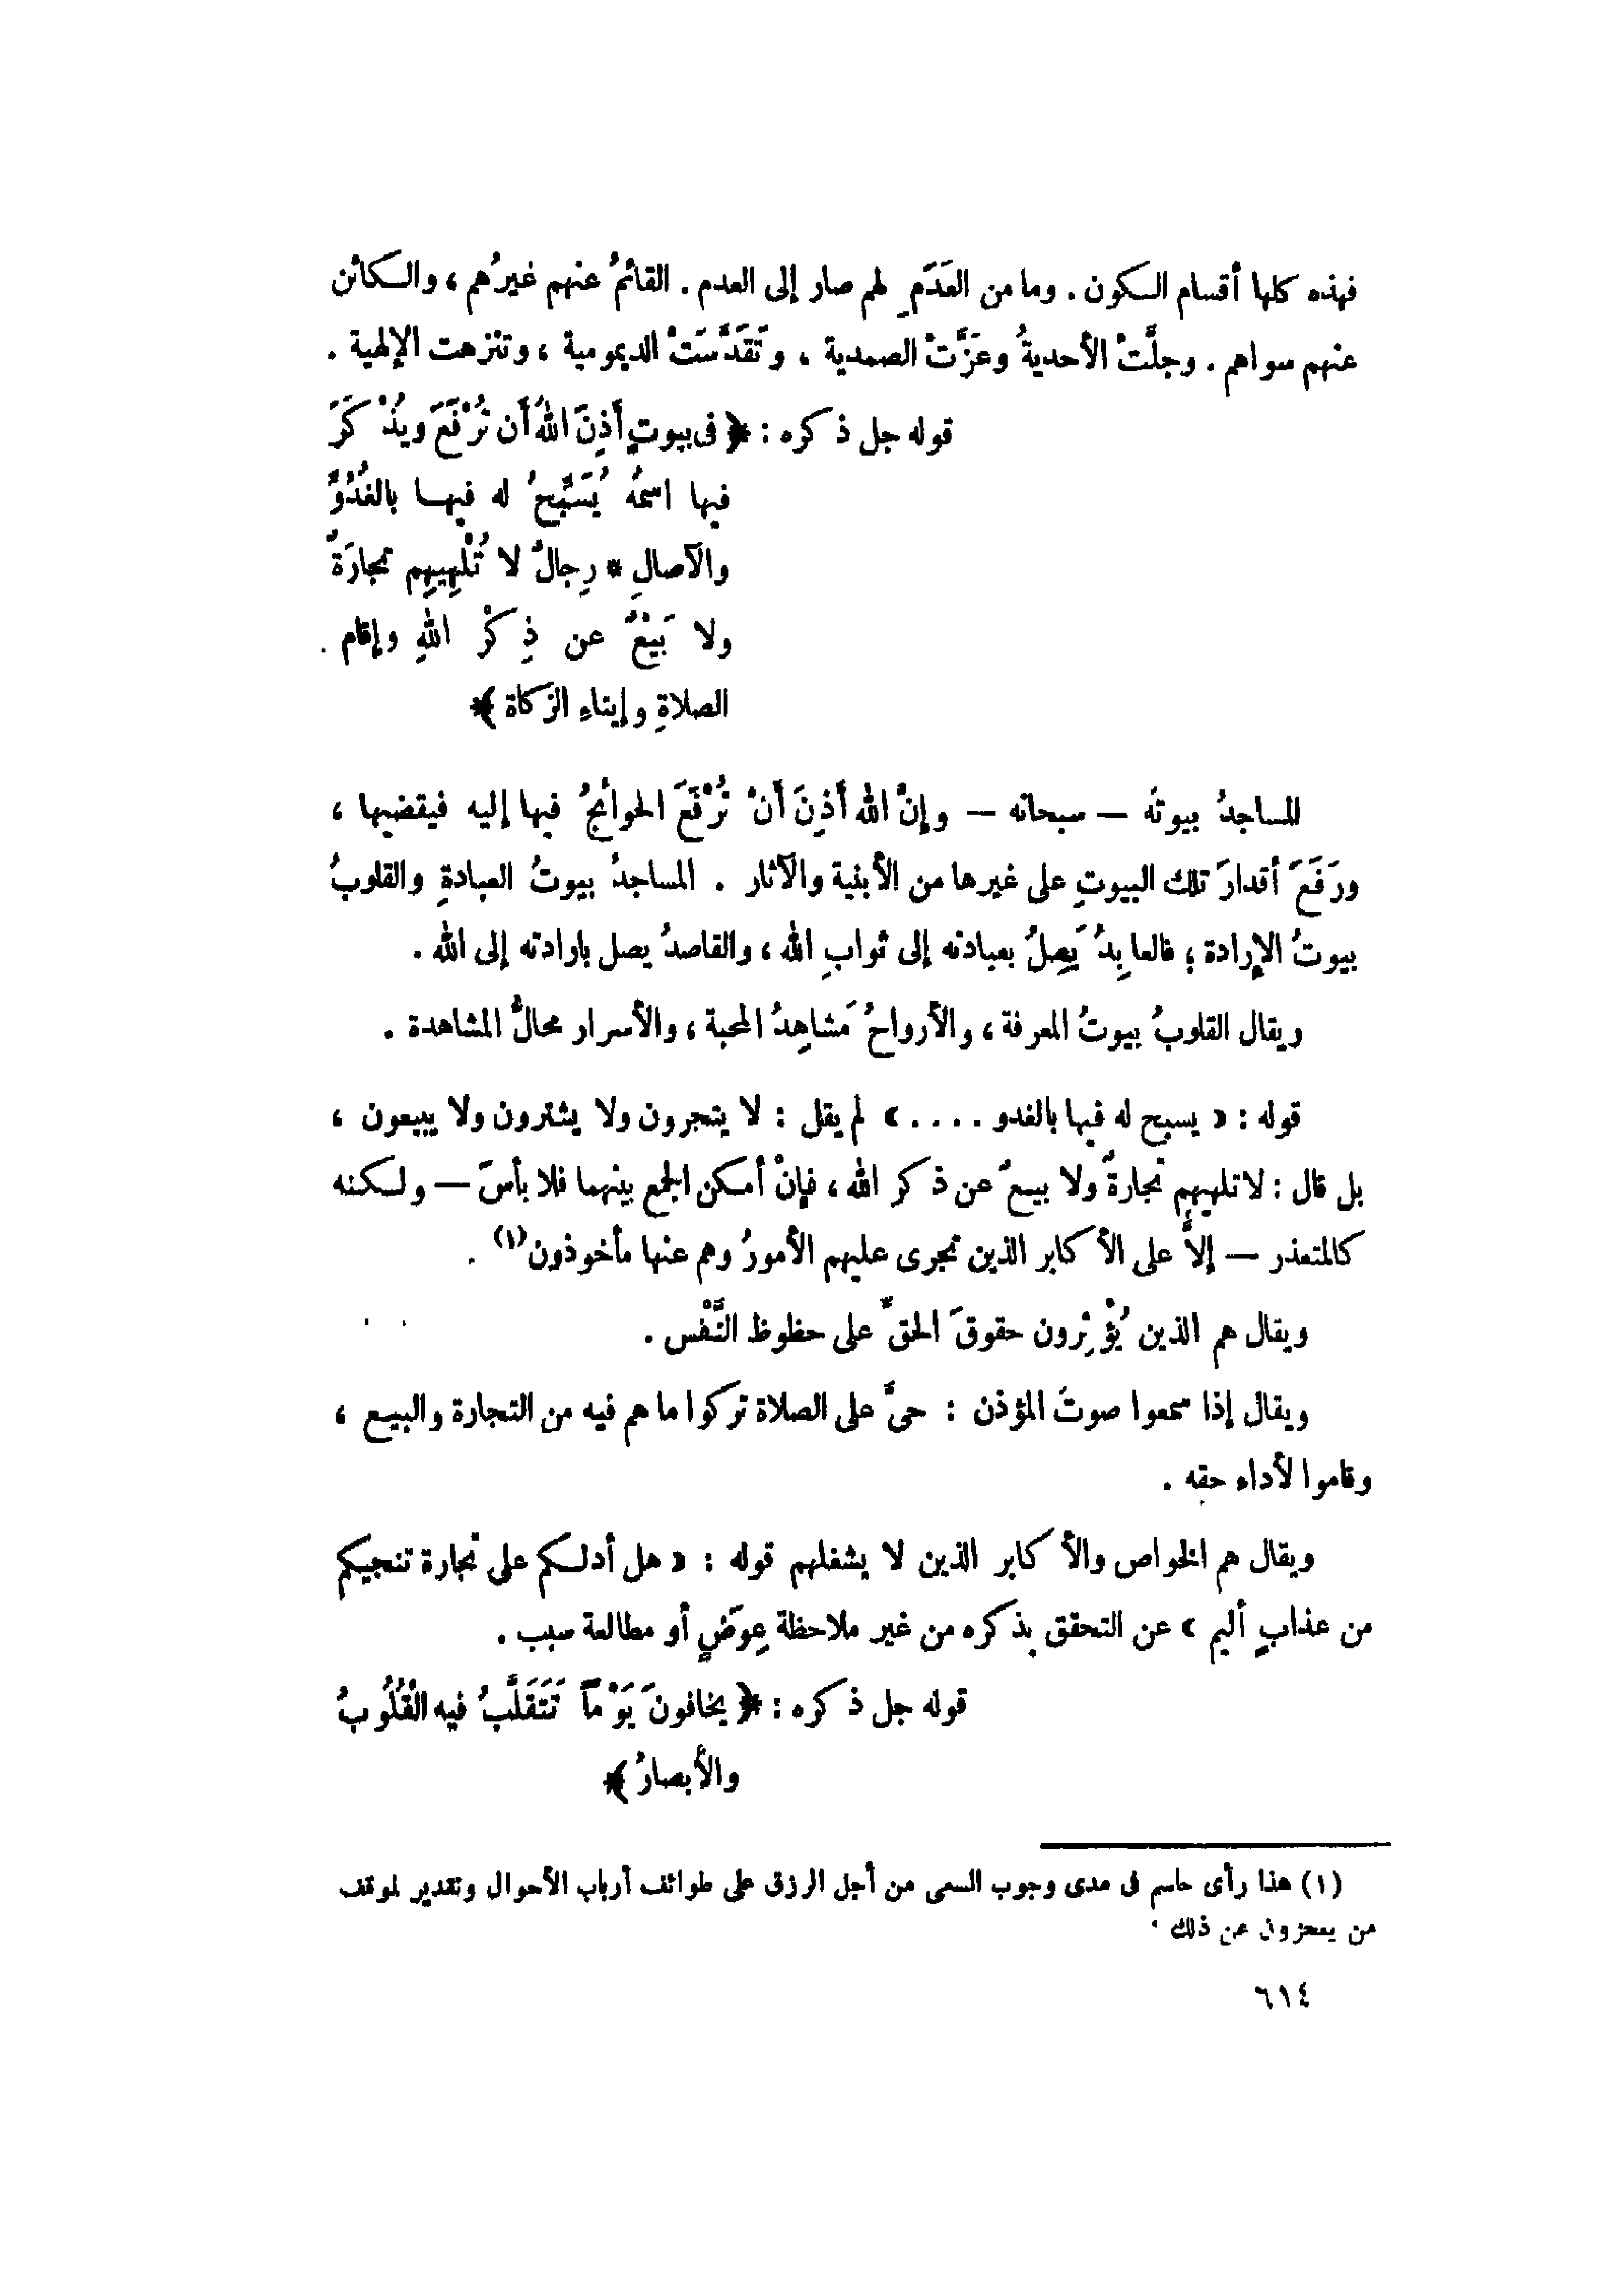 فهذه كلها أقسام الكون . وما من العَدَمِ لهم صار إلى العدم . القائمُ عنهم غيرُهم ، والكائن
عنهم سواهم . وجلَّتْ الأحديةُ وعَزَّتْ الصمدية ، وتَقَدَّسَتْ الديمومية ، وتنزهت الإلهية .
قوله جل ذكره : ﴿ فى بيوتٍ أَذِنَ اللهُ أَن تُرْفَعَ ويُذْكَرَ
فيها اسمُه يُسَبِّحُ له فيها بالغُدُوِّ
والآصالِ * رِجالٌ لا تُلْهِيهِم تجارَةٌ
ولا بَيْعٌ عن ذِكْرِ اللهِ وإقام
الصلاةِ وإيتاءِ الزكاة ﴾
المساجدُ بيوتُه — سبحانه — وإنَّ الله أَذِنَ أَنْ تُرْفَعَ الحوائجُ فيها إليه فيقضيها ،
ورَفَعَ أقدارَ تلك البيوتِ على غيرها من الأبنية والآثار . المساجدُ بيوتُ العبادةِ والقلوبُ
بيوتُ الإرادة ؛ فالعابِدُ يَصِلُ بعبادته إلى ثوابِ الله ، والقاصدُ يصل بإرادته إلى الله .
ويقال القلوبُ بيوتُ المعرفة ، والأرواحُ مَشاهِدُ المحبة ، والأسرار محالُّ المشاهدة .
قوله : « يسبح له فيها بالغدو .... » لم يقل : لا يتجرون ولا يشترون ولا يبيعون ،
بل قال : لا تلهيهم تجارةٌ ولا بيعٌ عن ذكر الله ، فإنْ أمكن الجمع بينهما فلا بأسَ — ولكنه
كالمتعذر — إلاَّ على الأكابر الذين تجرى عليهم الأمورُ وهم عنها مأخوذون(١) .
ويقال هم الذين يُؤْثِرون حقوقَ الحقِّ على حظوظ النَّفْس .
ويقال إذا سمعوا صوتَ المؤذن : حىَّ على الصلاة تركوا ما هم فيه من التجارة والبيع ،
وقاموا لأداء حقه .
ويقال هم الخواص والأكابر الذين لا يشغلهم قوله : « هل أدلكم على تجارة تنجيكم
من عذابٍ أليم » عن التحقق بذكره من غير ملاحظة عِوَضٍ أو مطالعة سبب .
قوله جل ذكره : ﴿ يخافونَ يَوْمَاً تَتَقَلَّبُ فيه القُلُوبُ
والأبصارُ ﴾
(١) هذا رأى حاسم فى مدى وجوب السعى من أجل الرزق على طوائف أرباب الأحوال وتقدير لموقف
من يعجزون عن ذلك .
٦١٤